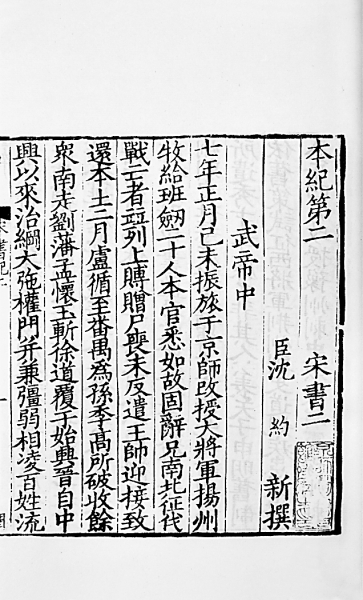 本紀第二 宋書二
臣沈約 新撰
武帝中
七年正月己未振旅于京師改授大將軍揚州
牧給班劒二十人本官悉如故固辭凡南北征伐
戰亡者並列上賻贈尸喪未反遣王師迎接致
還本土二月盧循至番禺為孫季高所破收餘
衆南走劉藩孟懷玉斬徐道覆于始興晉自中
興以來治綱大弛權門并兼彊弱相凌百姓流
宋書紀二